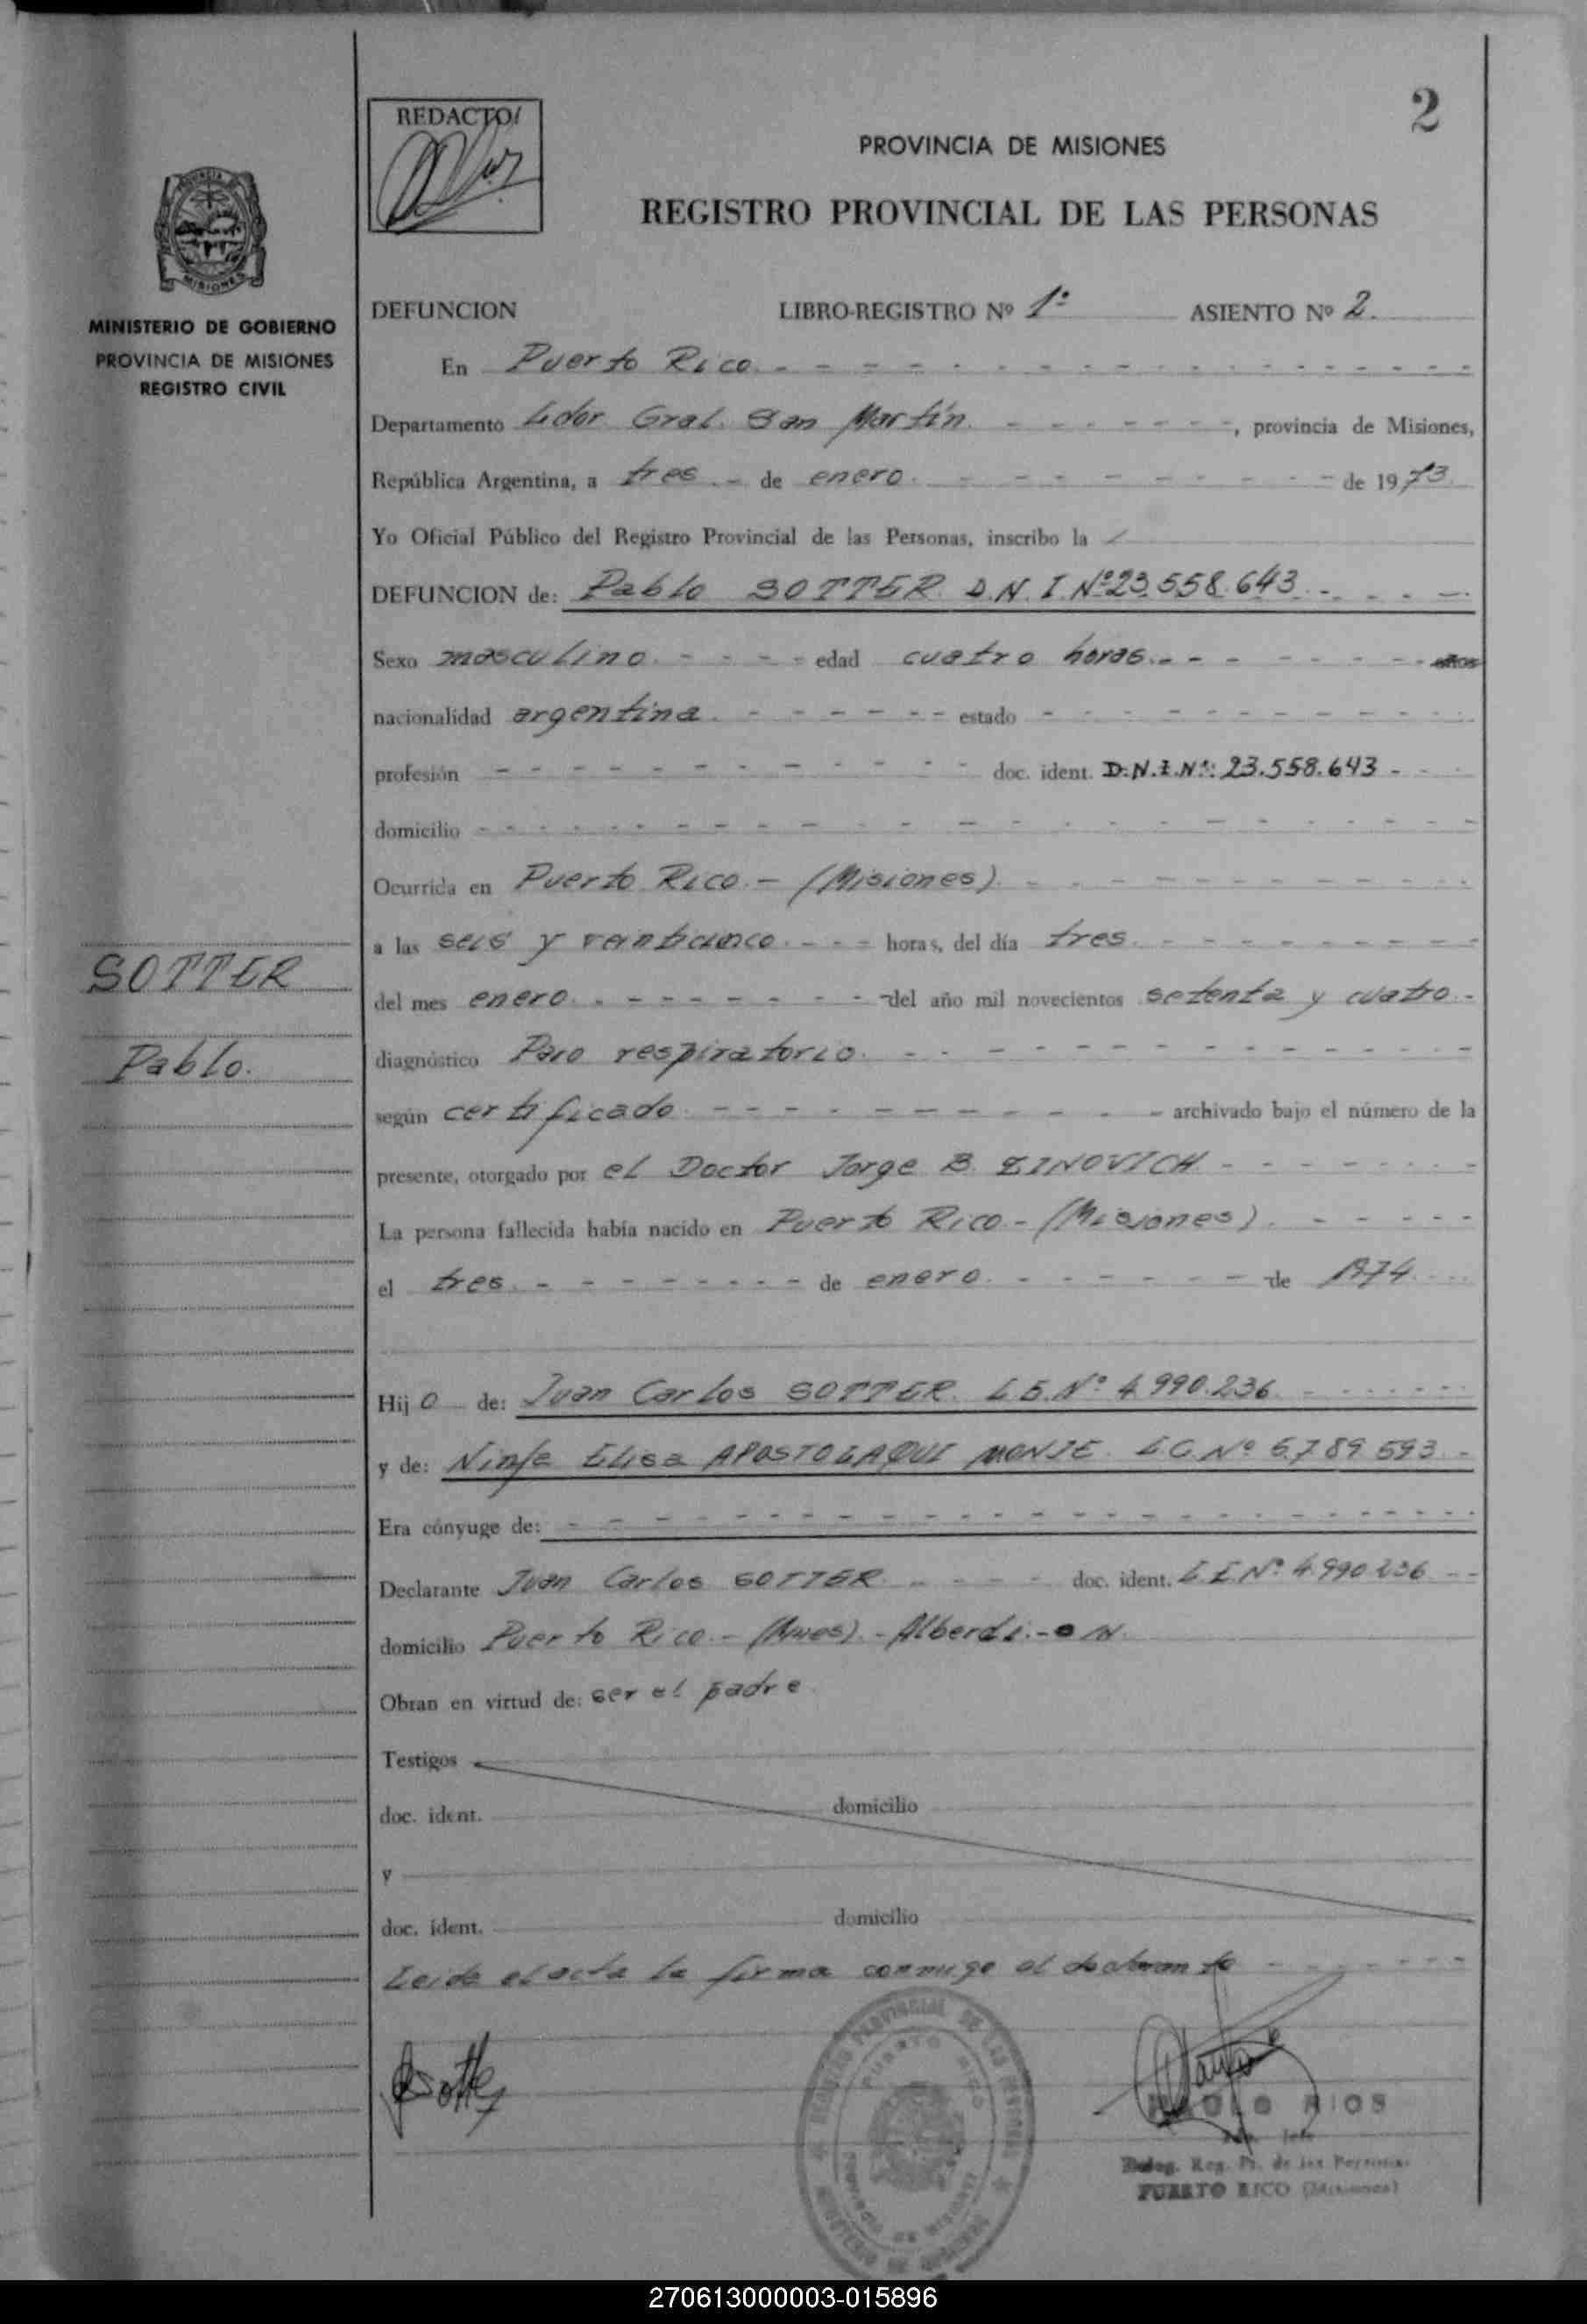 REDACTO:
2
PROVINCIA DE MISIONES
REGISTRO PROVINCIAL DE LAS PERSONAS
MISIONES
MINISTERIO DE GOBIERNO
PROVINCIA DE MISIONES
REGISTRO CIVIL
DEFUNCION LIBRO-REGISTRO Nº 1º ASIENTO Nº 2.
En Puerto Rico.
Departamento Ldor. Gral. San Martín. , provincia de Misiones,
República Argentina, a tres. de enero. de 1973.
Yo Oficial Público del Registro Provincial de las Personas, inscribo la
DEFUNCION de: Pablo SOTTER. D.N.I. Nº 23.558.643.
Sexo masculino. edad cuatro horas. años
nacionalidad argentina. estado
profesión doc. ident. D.N.I.Nº: 23.558.643
domicilio
Ocurrida en Puerto Rico.- (Misiones).
a las seis y veinticinco. horas, del día tres.
SOTTER
del mes enero. del año mil novecientos setenta y cuatro.
Pablo.
diagnóstico Paro respiratorio.
según certificado. archivado bajo el número de la
presente, otorgado por el Doctor Jorge B. ZINOVICH
La persona fallecida había nacido en Puerto Rico.- (Misiones).
el tres. de enero. de 1974.
Hijo de: Juan Carlos SOTTER. L.E.Nº 4.990.236.
y de: Ninfa Elisa APOSTOLAQUI MONJE. L.C.Nº 5.789.593.
Era cónyuge de:
Declarante Juan Carlos SOTTER. doc. ident. L.E.Nº 4.990.236
domicilio Puerto Rico.- (Mnes).- Alberdi.-
Obran en virtud de: ser el padre.
Testigos
doc. ident. domicilio
y
doc. ident. domicilio
Leida el acta la firma conmigo el declarante
REGISTRO PROVINCIAL DE LAS PERSONAS
PUERTO RICO
PROVINCIA DE MISIONES
MINISTERIO DE GOBIERNO
RIOS
Deleg. Reg. P. de las Personas
PUERTO RICO (Misiones)
270613000003-015896